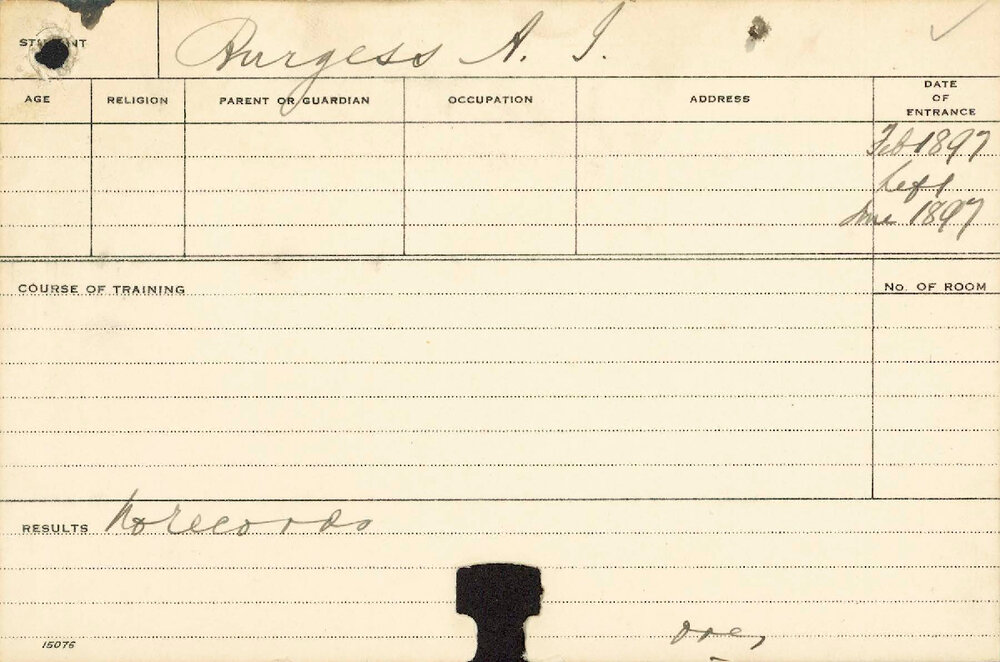 STUDENT Burgess A. I.
AGE RELIGION PARENT OR GUARDIAN OCCUPATION ADDRESS DATE OF ENTRANCE
Feb 1897
Left
June 1897
COURSE OF TRAINING No. OF ROOM
RESULTS No records
15076